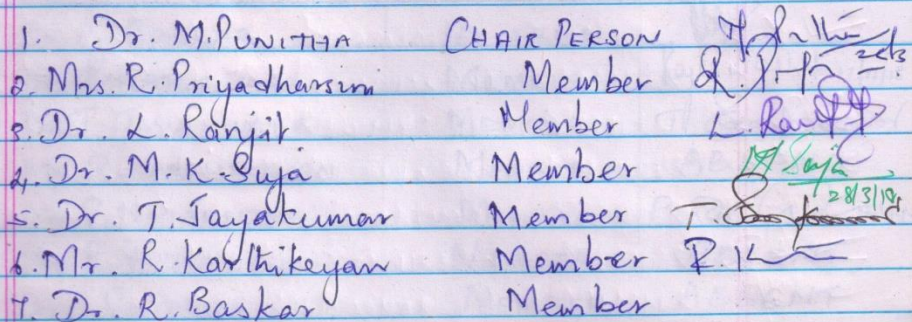 1. Dr. M. PUNITHA CHAIR PERSON
2. Mrs. R. Priyadharsini Member R. 28/3
3. Dr. L. Ranjit Member L. Ranjit
4. Dr. M. K. Suja Member M Suja 28/3/18
5. Dr. T. Jayakumar Member T
6. Mr. R. Karthikeyan Member R. K
7. Dr. R. Baskar Member